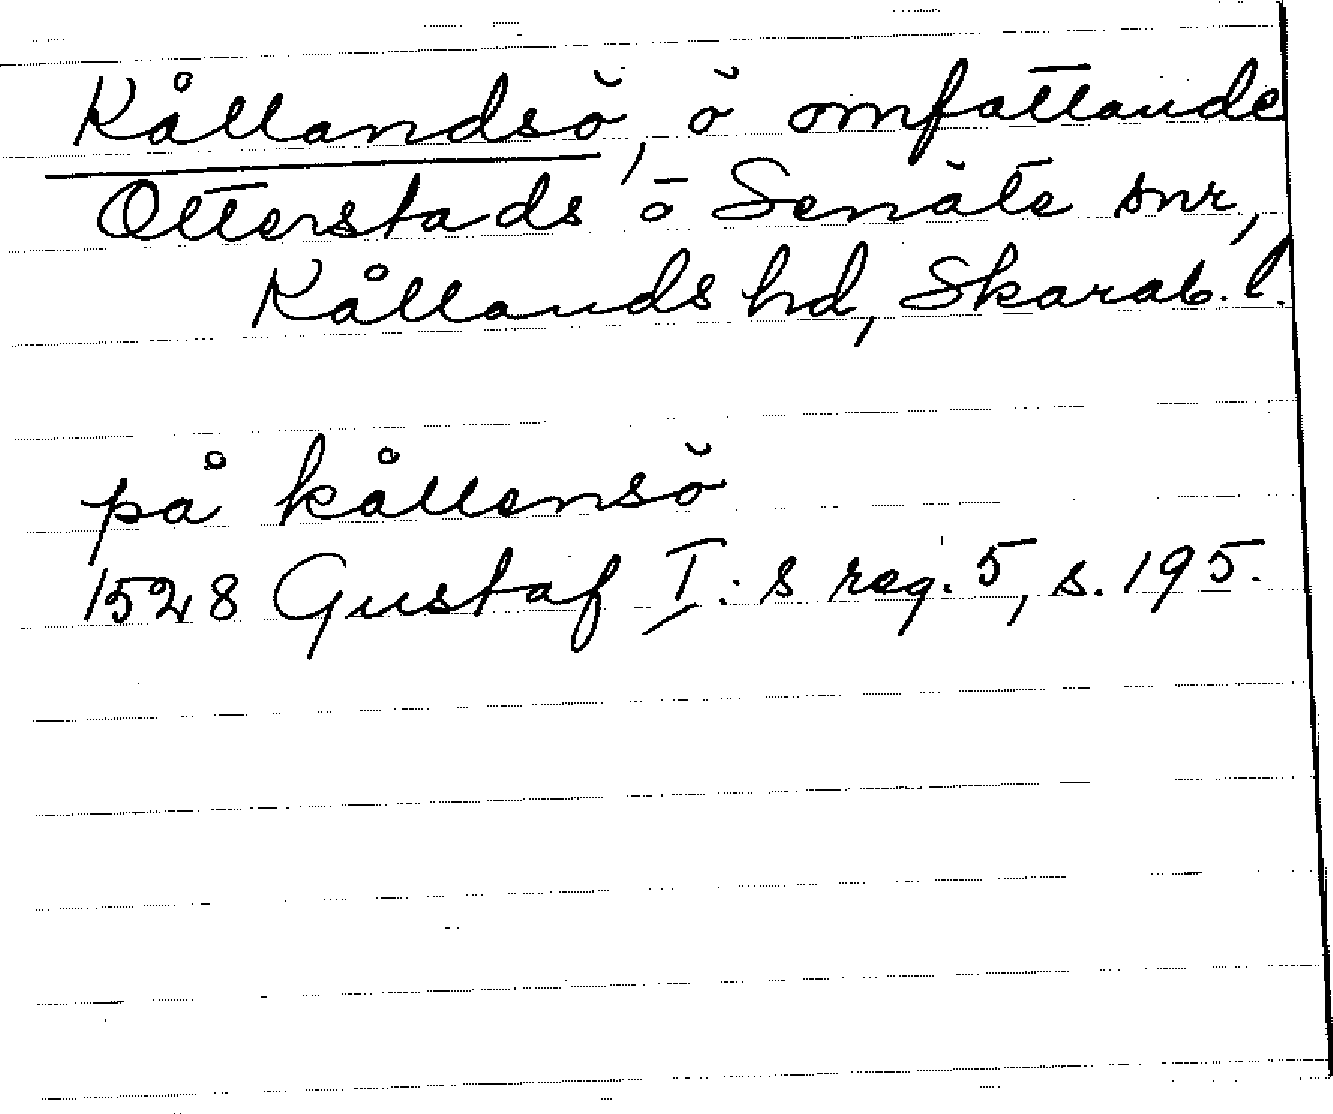 Kållandsö, ö omfattande
Otterstads o Senäte snr,
Kållands hd, Skarab. l.
på kållensö
1528 Gustaf I:s reg. 5, s. 195.